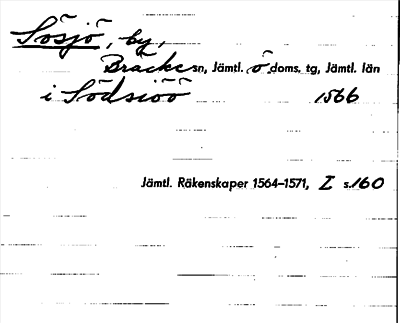 Sösjö, by,
Bräcke sn, Jämtl. ö doms. tg, Jämtl. län
i Södsiöö 1566
Jämtl. Räkenskaper 1564–1571, I s. 160